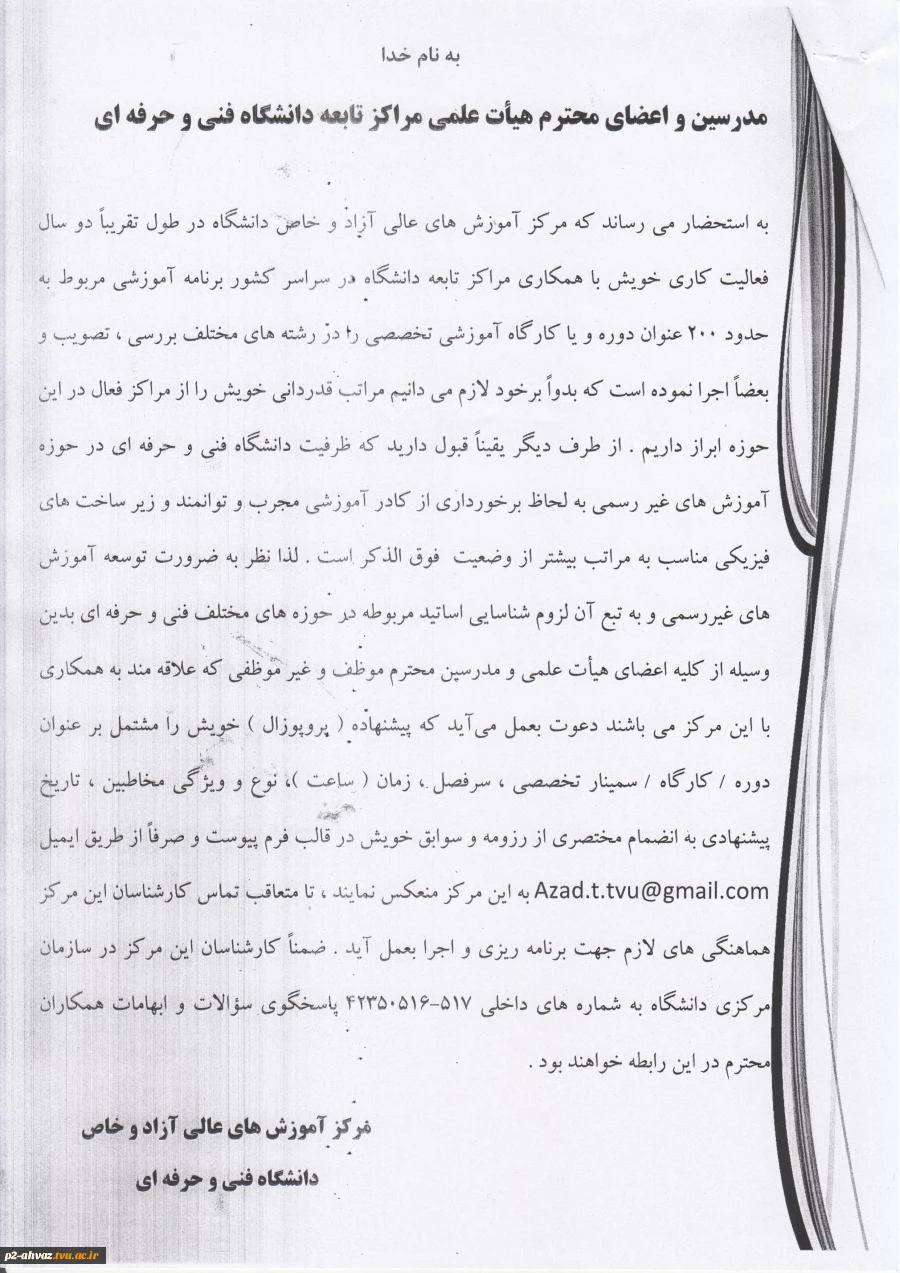 به نام خدا
مدرسین و اعضای محترم هیأت علمی مراکز تابعه دانشگاه فنی و حرفه ای
به استحضار می رساند که مرکز آموزش های عالی آزاد و خاص دانشگاه در طول تقریباً دو سال
فعالیت کاری خویش با همکاری مراکز تابعه دانشگاه در سراسر کشور برنامه آموزشی مربوط به
حدود ۲۰۰ عنوان دوره و یا کارگاه آموزشی تخصصی را در رشته های مختلف بررسی ، تصویب و
بعضاً اجرا نموده است که بدواً برخود لازم می دانیم مراتب قدردانی خویش را از مراکز فعال در این
حوزه ابراز داریم . از طرف دیگر یقیناً قبول دارید که ظرفیت دانشگاه فنی و حرفه ای در حوزه
آموزش های غیر رسمی به لحاظ برخورداری از کادر آموزشی مجرب و توانمند و زیر ساخت های
فیزیکی مناسب به مراتب بیشتر از وضعیت فوق الذکر است . لذا نظر به ضرورت توسعه آموزش
های غیررسمی و به تبع آن لزوم شناسایی اساتید مربوطه در حوزه های مختلف فنی و حرفه ای بدین
وسیله از کلیه اعضای هیأت علمی و مدرسین محترم موظف و غیر موظفی که علاقه مند به همکاری
با این مرکز می باشند دعوت بعمل می‌آید که پیشنهاده ( پروپوزال ) خویش را مشتمل بر عنوان
دوره / کارگاه / سمینار تخصصی ، سرفصل ، زمان ( ساعت )، نوع و ویژگی مخاطبین ، تاریخ
پیشنهادی به انضمام مختصری از رزومه و سوابق خویش در قالب فرم پیوست و صرفاً از طریق ایمیل
Azad.t.tvu@gmail.com به این مرکز منعکس نمایند ، تا متعاقب تماس کارشناسان این مرکز
هماهنگی های لازم جهت برنامه ریزی و اجرا بعمل آید . ضمناً کارشناسان این مرکز در سازمان
مرکزی دانشگاه به شماره های داخلی ۵۱۷-۴۲۳۵۰۵۱۶ پاسخگوی سؤالات و ابهامات همکاران
محترم در این رابطه خواهند بود .
مرکز آموزش های عالی آزاد و خاص
دانشگاه فنی و حرفه ای
p2-ahvaz.tvu.ac.ir